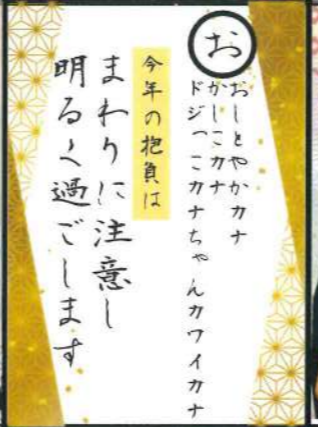 お
おしとやかカナ
かしこカナ
ドジっこカナちゃんカワイカナ
今年の抱負は
まわりに注意し
明るく過ごします